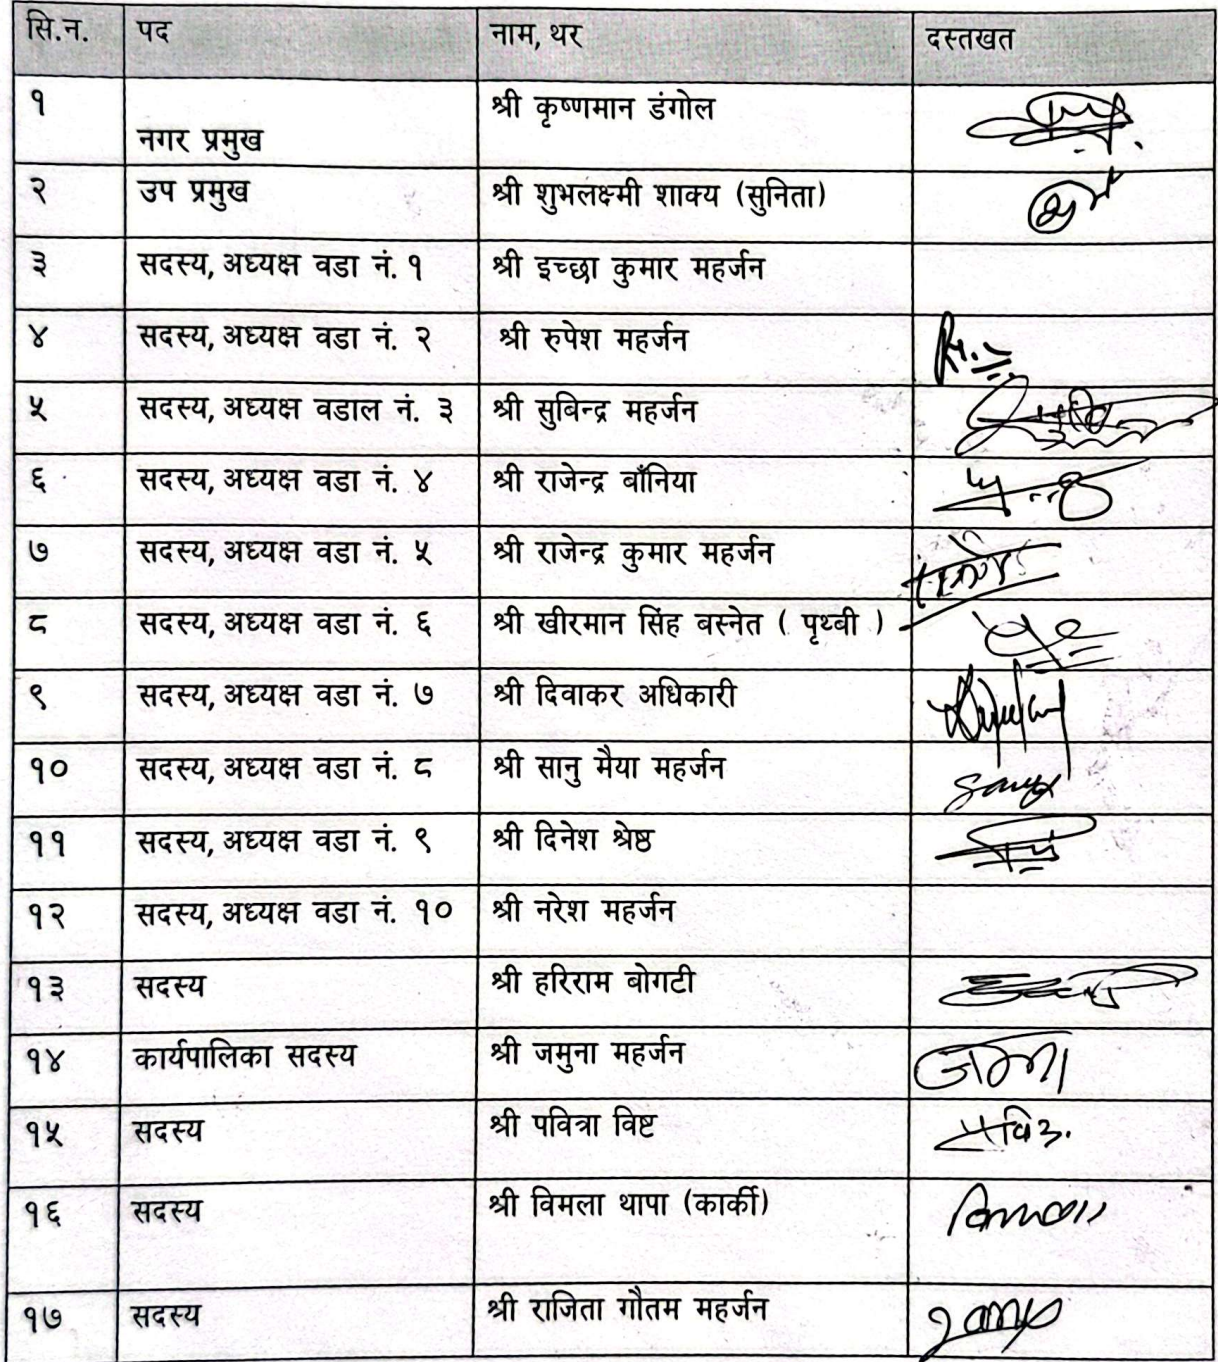 सि.न. पद नाम, थर दस्तखत
१ नगर प्रमुख श्री कृष्णमान डंगोल
२ उप प्रमुख श्री शुभलक्ष्मी शाक्य (सुनिता)
३ सदस्य, अध्यक्ष वडा नं. १ श्री इच्छा कुमार महर्जन
४ सदस्य, अध्यक्ष वडा नं. २ श्री रुपेश महर्जन
५ सदस्य, अध्यक्ष वडाल नं. ३ श्री सुबिन्द्र महर्जन
६ सदस्य, अध्यक्ष वडा नं. ४ श्री राजेन्द्र बाँनिया
७ सदस्य, अध्यक्ष वडा नं. ५ श्री राजेन्द्र कुमार महर्जन
८ सदस्य, अध्यक्ष वडा नं. ६ श्री खीरमान सिंह बस्नेत ( पृथ्बी )
९ सदस्य, अध्यक्ष वडा नं. ७ श्री दिवाकर अधिकारी
१० सदस्य, अध्यक्ष वडा नं. ८ श्री सानु मैया महर्जन
११ सदस्य, अध्यक्ष वडा नं. ९ श्री दिनेश श्रेष्ठ
१२ सदस्य, अध्यक्ष वडा नं. १० श्री नरेश महर्जन
१३ सदस्य श्री हरिराम बोगटी
१४ कार्यपालिका सदस्य श्री जमुना महर्जन
१५ सदस्य श्री पवित्रा विष्ट
१६ सदस्य श्री विमला थापा (कार्की)
१७ सदस्य श्री राजिता गौतम महर्जन